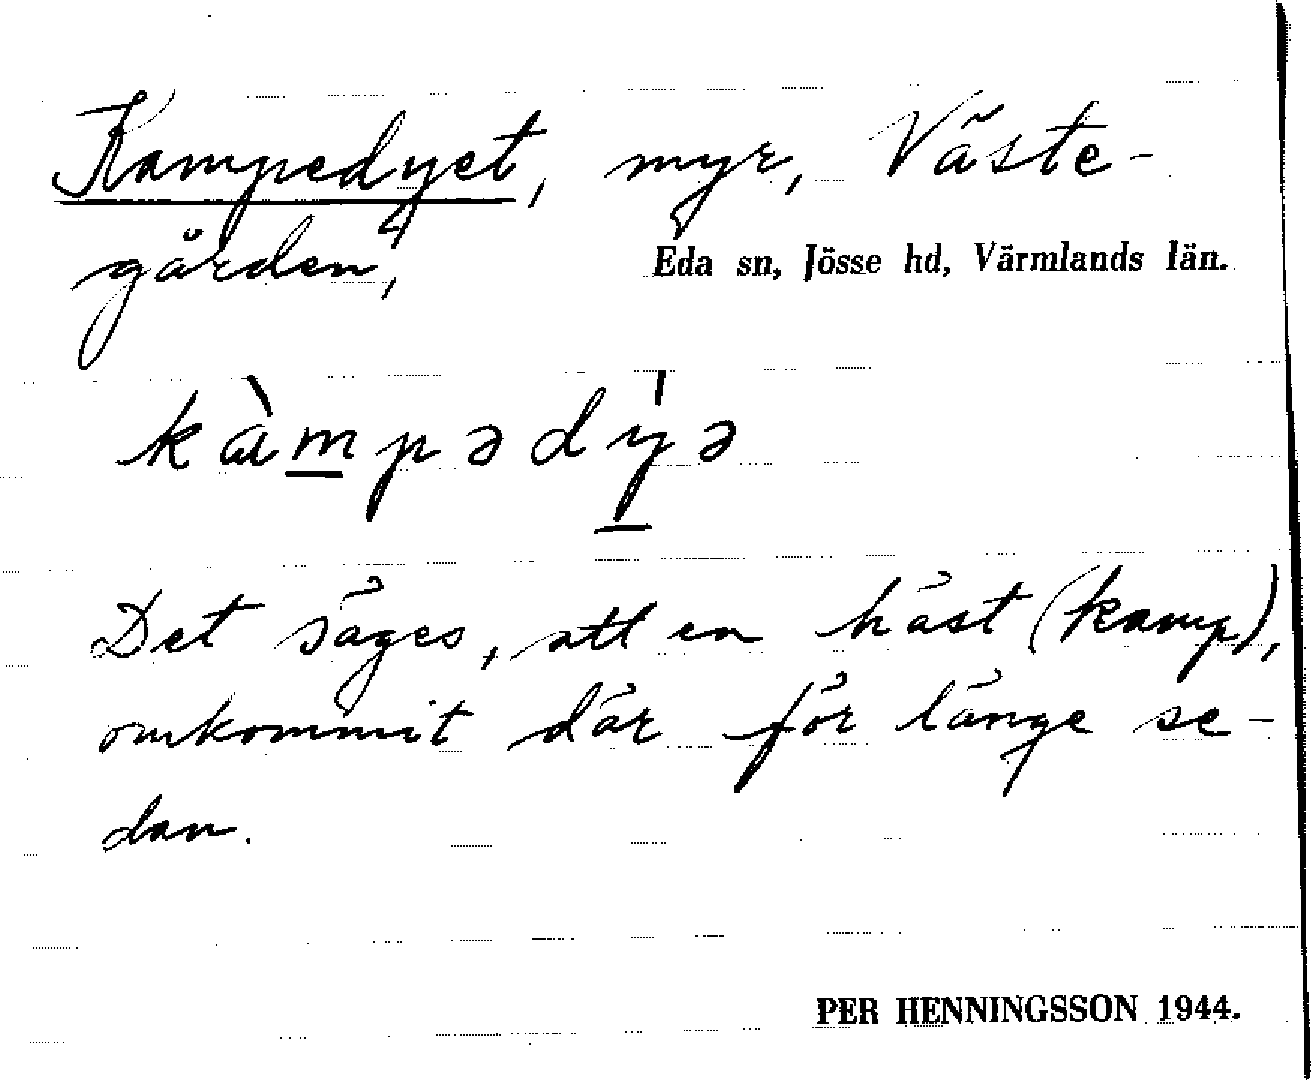 Kampedyet, myr, Väste-
gården, Eda sn, Jösse hd, Värmlands län.
kàmpədy̍ə
Det säges, att en häst (kamp),
omkommit där för länge se-
dan.
PER HENNINGSSON 1944.